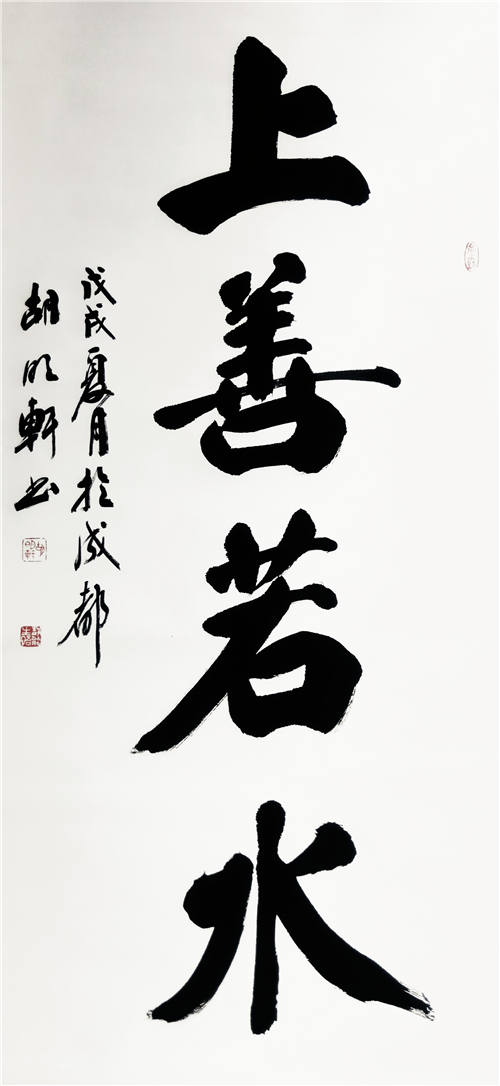 上善若水
戊戌夏月於成都
胡明軒书